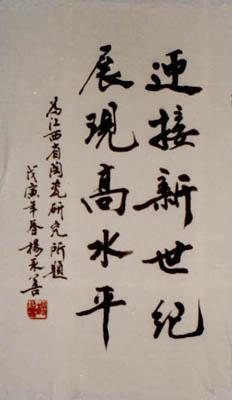 迎接新世纪
展現高水平
为江西省陶瓷研究所題
戊寅年春楊永善